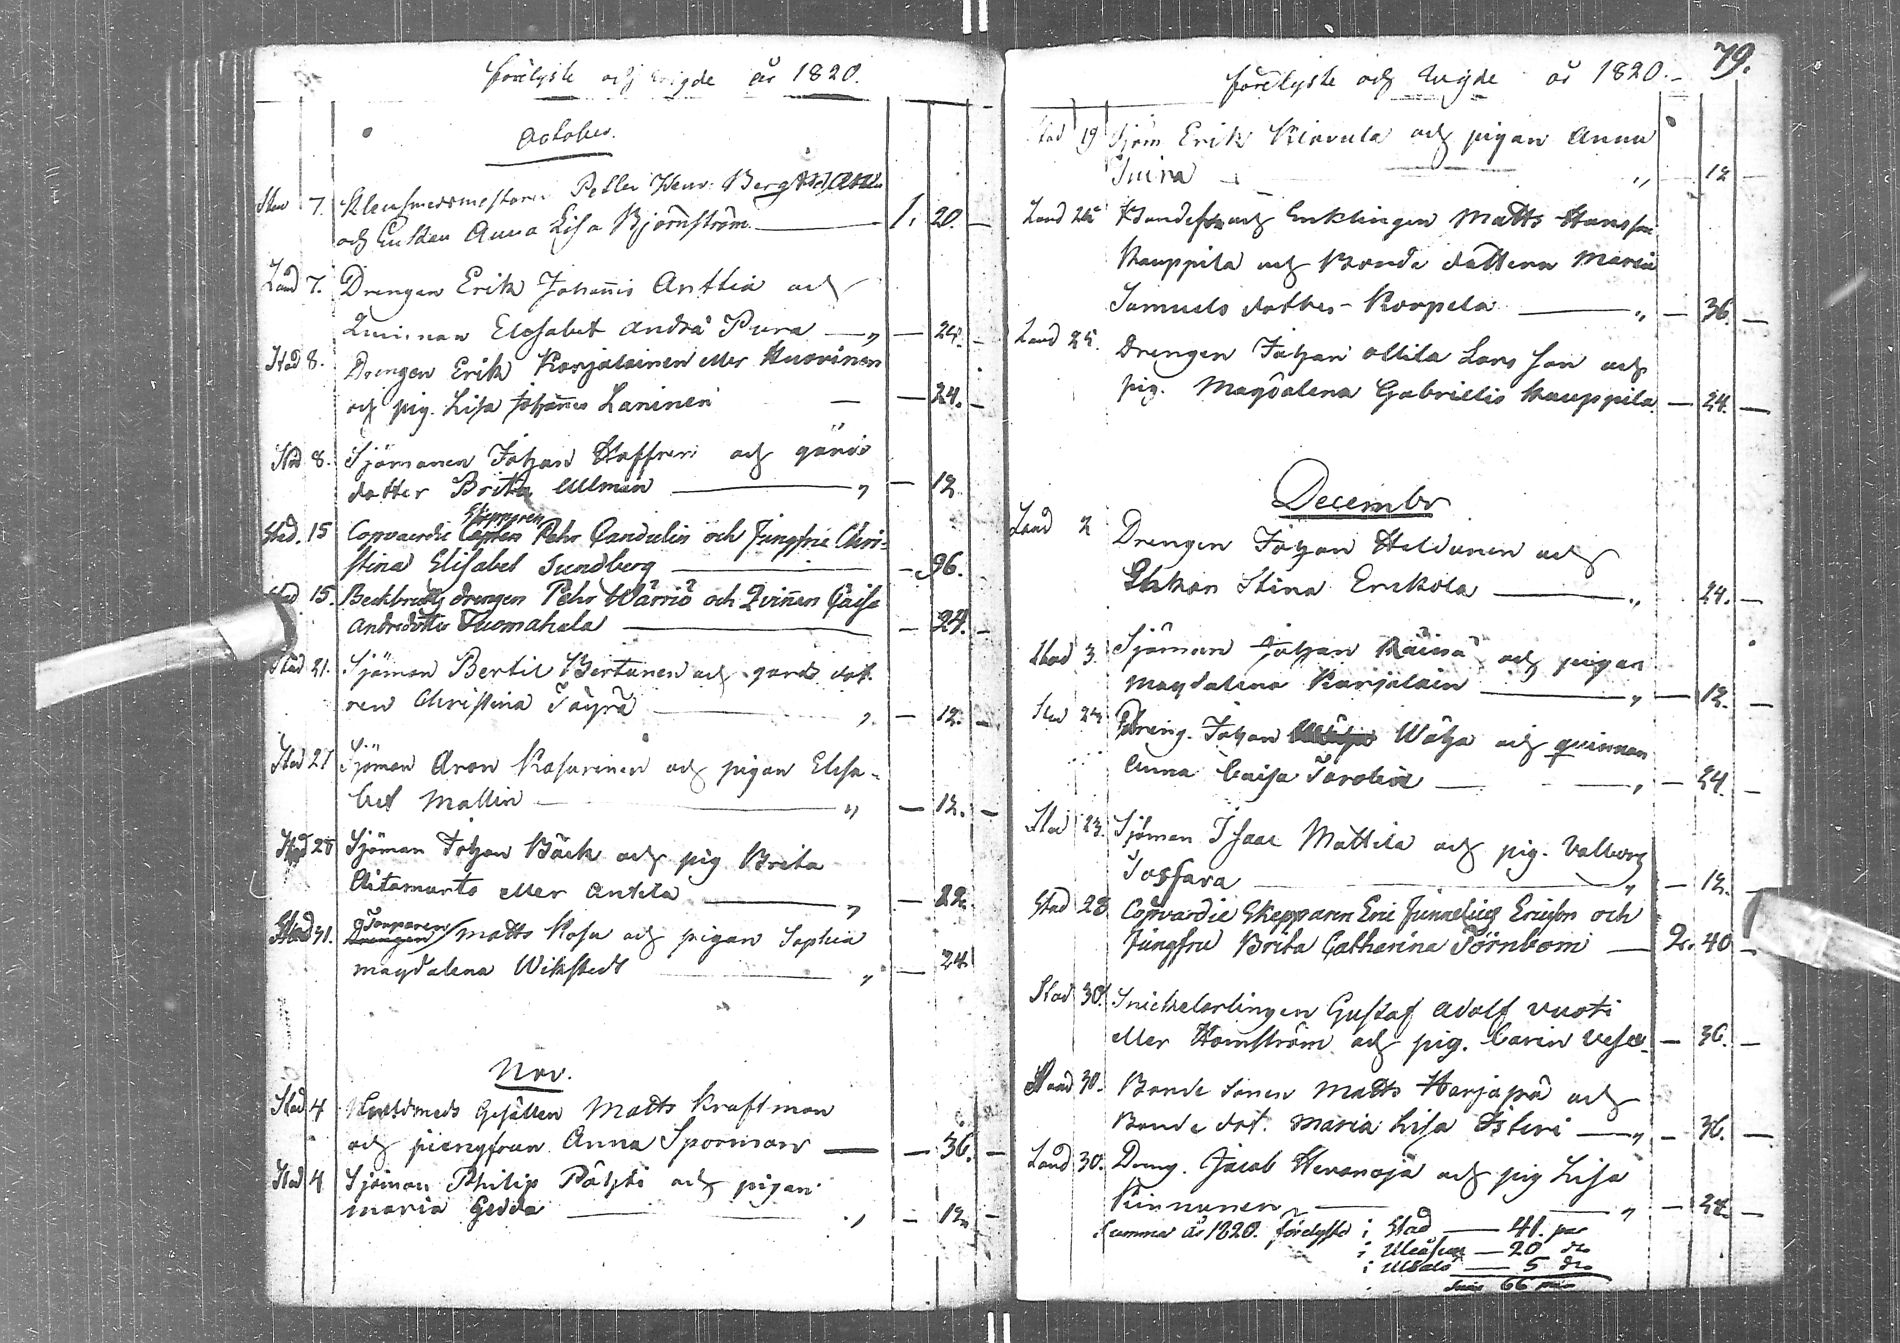 förelyste och wigde år 1820.
October.
Stad 7. Klensmedsmästaren Petter Henr: Bergström
och Enkan Anna Lisa Björnström 1. 20.
Land 7. Drengen Erik Johannis Anttia och
Quinnan Elisabet Andrä Pura „ 24.
Stad 8. Drengen Erik Karjalainen eller Huovinen
och pig. Lisa Johannes Laninen 24.
Stad 8. Sjömanen Johan Staffren och gårds
dotter Brita Ullman „ 12
Skepparen
Stad. 15 Copvaerdie Capten Pehr Candelin och Jungfru Chri-
stina Elisabet Sundberg 96.
Stad 15. Beckbruks drengen Pehr Wärriö och Qvinnan Caisa
Andredotter Tuomahela 24.
Stad 21. Sjöman Bertil Bertunen och gårds dot
ren Christina Täyrä „ 12.
Stad 21 Sjöman Aron Kasurinen och pigan Elisa-
bet Mallin „ 12.
Stad 28 Sjöman Johan Bäck och pig Brita
Aitamurto eller Antila „ 22.
Torparen
Stad 31. Drengen Matts Kosu och pigan Sophia
Magdalena Wikstedt „ 24
Nov.
Stad 4 Gesällen Matts Kraftman
och Anna Sporman 36.
Stad 4 Sjöman Philip Pätzti och pigan
Maria Gedda „ 12.
79.
förelyste och wigde år 1820.
Stad 19 Sjöm Erik Kiovula och pigan Anna
„ 12
Land 25 och Enklingen Matts Hansson
Kauppila och Bonde dottern Maria
Samuels dotter Korpela „ 36.
Land 25. Drengen Johan Ollila Lars Son och
pig. Magdalena Gabrielis Kauppila 24.
December
Land 2 Drengen Johan Heldunen och
Enkan Stina Erikola „ 24.
Stad 3. Sjöman Johan Räisä och pigan
Magdalena Karjalain „ 12.
Stad Dreng. Johan Wäha och quinnan
Anna Caisa „ 24.
Stad 23. Sjöman Isaac Mattila och pig. Valborg
Tosfava „ 12.
Stad 28 Copvardie Skepparen Eric Junnelius Ericson och
Jungfru Brita Catharina Törnbom 2. 40
Stad 30. Snickelerlingen Gustaf Adolf Vuoti
eller Hornström och pig. Carin Vesa 36.
Land 30. Bonde Sonen Matts Harjapä och
Bonde dot. Maria Lisa Isteri „ 36.
Land 30. Dreng. Jacob Hevonoja och pig Lisa
Kinnunen „ 24.
Summa år 1820. förelyste i Stad 41. par
i Uleåsun 20 do
i Ulsalo 5 do
Suma 66 par